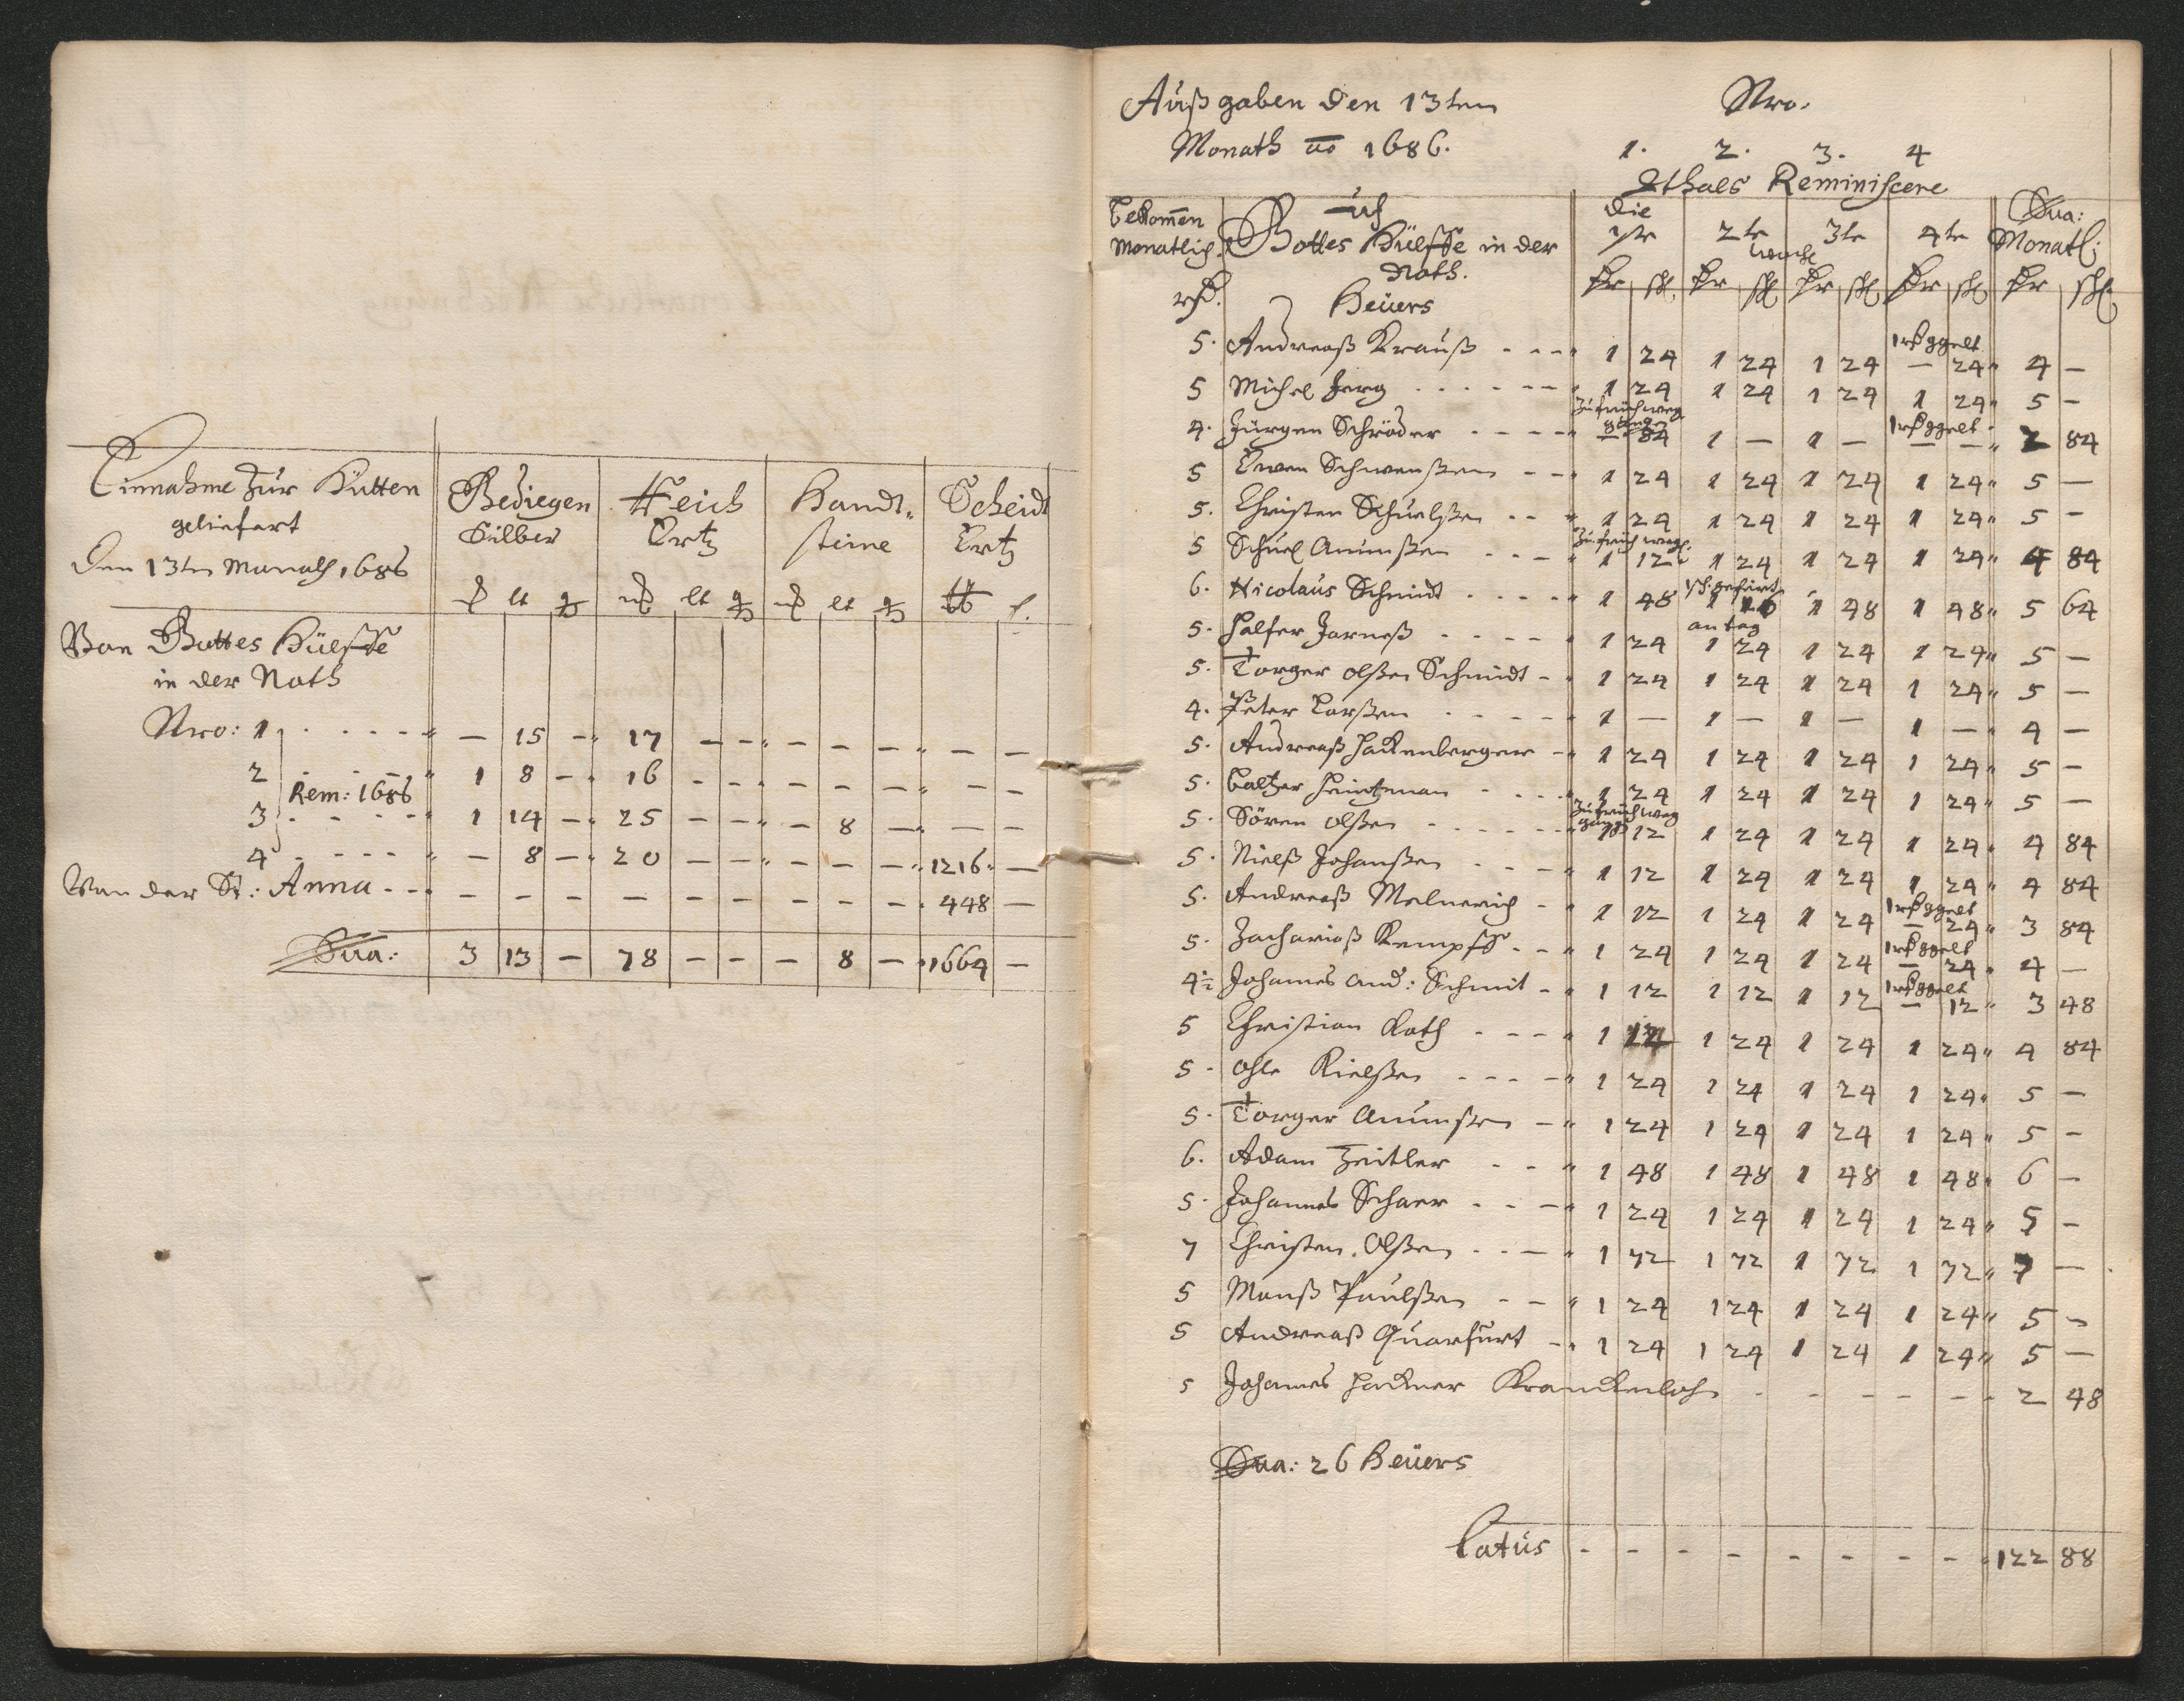 Einnahme zur Hütten
geliefert
Den 13ten Monath 1686
Gediegen Silber
Reich Ertz
Handtsteine
Scheidt Ertz
Von Gottes Hülffe
in der Noth
Nro: 1 - - - - — 15 — 17 — — — — — — —
2 - - - - 1 8 — 16 — — — — — — —
Rem: 1686
3 - - - - 1 14 — 25 — — — 8 — — —
4 - - - - — 8 — 20 — — — — — 1216 —
Von der St: Anna - - - — — — — — — — — — 448 —
Sua: 3 13 — 78 — — — 8 — 1664 —
Außgaben den 13ten
Monath ao 1686.
Nro.
1. 2. 3. 4
Reminiscere
Bekommen
Monatlich
uf
Gottes Hülffe in der
Noth.
Heüers
die
1te 2te 3te 4te
woche
Sua:
Monatl:
5. Andreaß Krauß - - - 1 24 1 24 1 24 — 24 4 —
5 Michel - - - 1 24 1 24 1 24 1 24 5 —
zu früh weg
4. Jürgen Schröder - - - — 84 1 — 1 — — — 2 84
5 Schwenßen - - 1 24 1 24 1 24 1 24 5 —
5. Christen - - 1 24 1 24 1 24 1 24 5 —
zu früh weg
5 - - - 1 12 1 24 1 24 1 24 4 84
6. Nicolaus Schmidt - - - 1 48 1 16 1 48 1 48 5 64
5. - - - 1 24 1 24 1 24 1 24 5 —
5. Torger olßen Schmidt - 1 24 1 24 1 24 1 24 5 —
4. Peter Larßen - - - 1 — 1 — 1 — 1 — 4 —
5. Andreaß Hackenberger - 1 24 1 24 1 24 1 24 5 —
5. Baltzer Heintzman - - - 1 24 1 24 1 24 1 24 5 —
zu früh weg
5. Sören olßen - - - 1 12 1 24 1 24 1 24 4 84
5. Nielß Johanßen - - - 1 12 1 24 1 24 1 24 4 84
5. Andreaß - 1 12 1 24 1 24 — 24 3 84
5. Zachariaß Kempffe - - 1 24 1 24 1 24 — 24 4 —
4½ Johannes And: Schmit - 1 12 1 12 1 12 — 12 3 48
5 Christian Roth - - - 1 12 1 24 1 24 1 24 4 84
5. Ohle Nielßen - - - 1 24 1 24 1 24 1 24 5 —
5. Torger - 1 24 1 24 1 24 1 24 5 —
6. Adam Zeitler - - 1 48 1 48 1 48 1 48 6 —
5. Johannes Schaer - - 1 24 1 24 1 24 1 24 5 —
7 Christen Olßen - - 1 72 1 72 1 72 1 72 7 —
5 Monß Paulßen - - 1 24 1 24 1 24 1 24 5 —
5 Andreaß Querfurt - 1 24 1 24 1 24 1 24 5 —
5 Johannes Krancken - - - - - 2 48
Sua: 26 Heüers
Latus - - - - - - - - 122 88